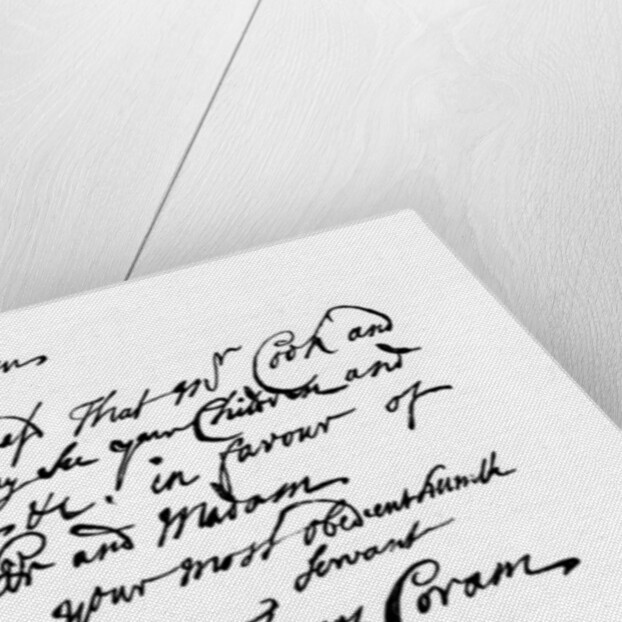 That Mr Cook and
see your Children and
&c. in favour of
Sr and Madam
your most obedent humble
Servant
Coram